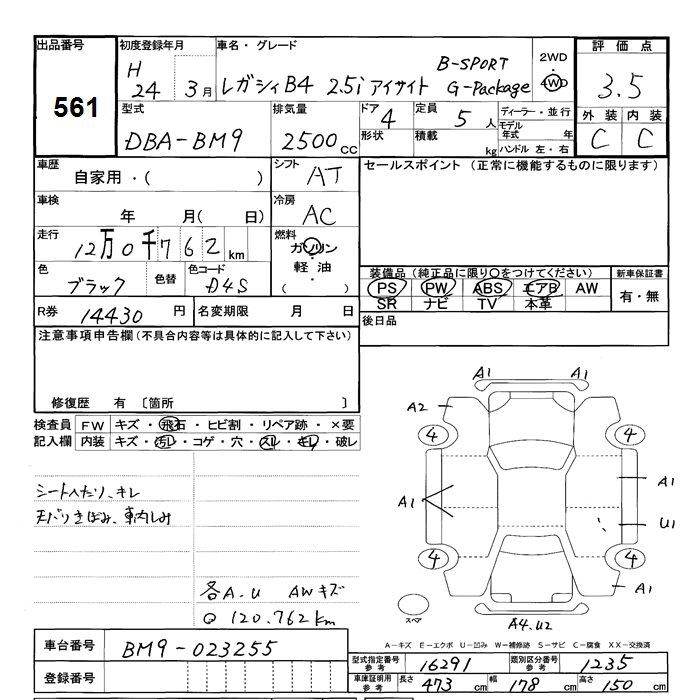 出品番号
561
初度登録年月
H 24 3月
車名・グレード
レガシィB4 2.5i アイサイト B-SPORT G-Package
2WD
4WD
評価点
3.5
型式
DBA-BM9
排気量
2500cc
ドア 4
形状
定員 5人
積載 kg
ディーラー・並行
モデル年式 年
ハンドル 左・右
外装 内装
C C
車歴
自家用・( )
シフト AT
セールスポイント (正常に機能するものに限ります)
車検
年 月( 日)
冷房 AC
走行
12万0千762km
燃料
ガソリン
軽油
( )
色
ブラック
色替
色コード
D4S
装備品(純正品に限り○をつけてください)
新車保証書
PS PW ABS エアB AW
有・無
SR ナビ TV 本革
R券 14430円
名変期限 月 日
後日品
注意事項申告欄(不具合内容等は具体的に記入して下さい)
修復歴 有 〔箇所 〕
検査員 FW キズ・飛石・ヒビ割・リペア跡・×要
記入欄 内装 キズ・汚レ・コゲ・穴・スレ・キレ・破レ
シートヘたり、キレ
天バリきばみ、車内しみ
各A.U AWキズ
Q 120.762km
A1 A1
A2
4 4
A1
A1
U1
4 4
A1
スペア
A4.U2
A-キズ E-エクボ U-凹み W-補修跡 S-サビ C-腐食 XX-交換済
車台番号 BM9-023255
登録番号
型式指定番号 参考 16291
類別区分番号 参考 1235
車庫証明用 参考 長さ 473cm 幅 178cm 高さ 150cm